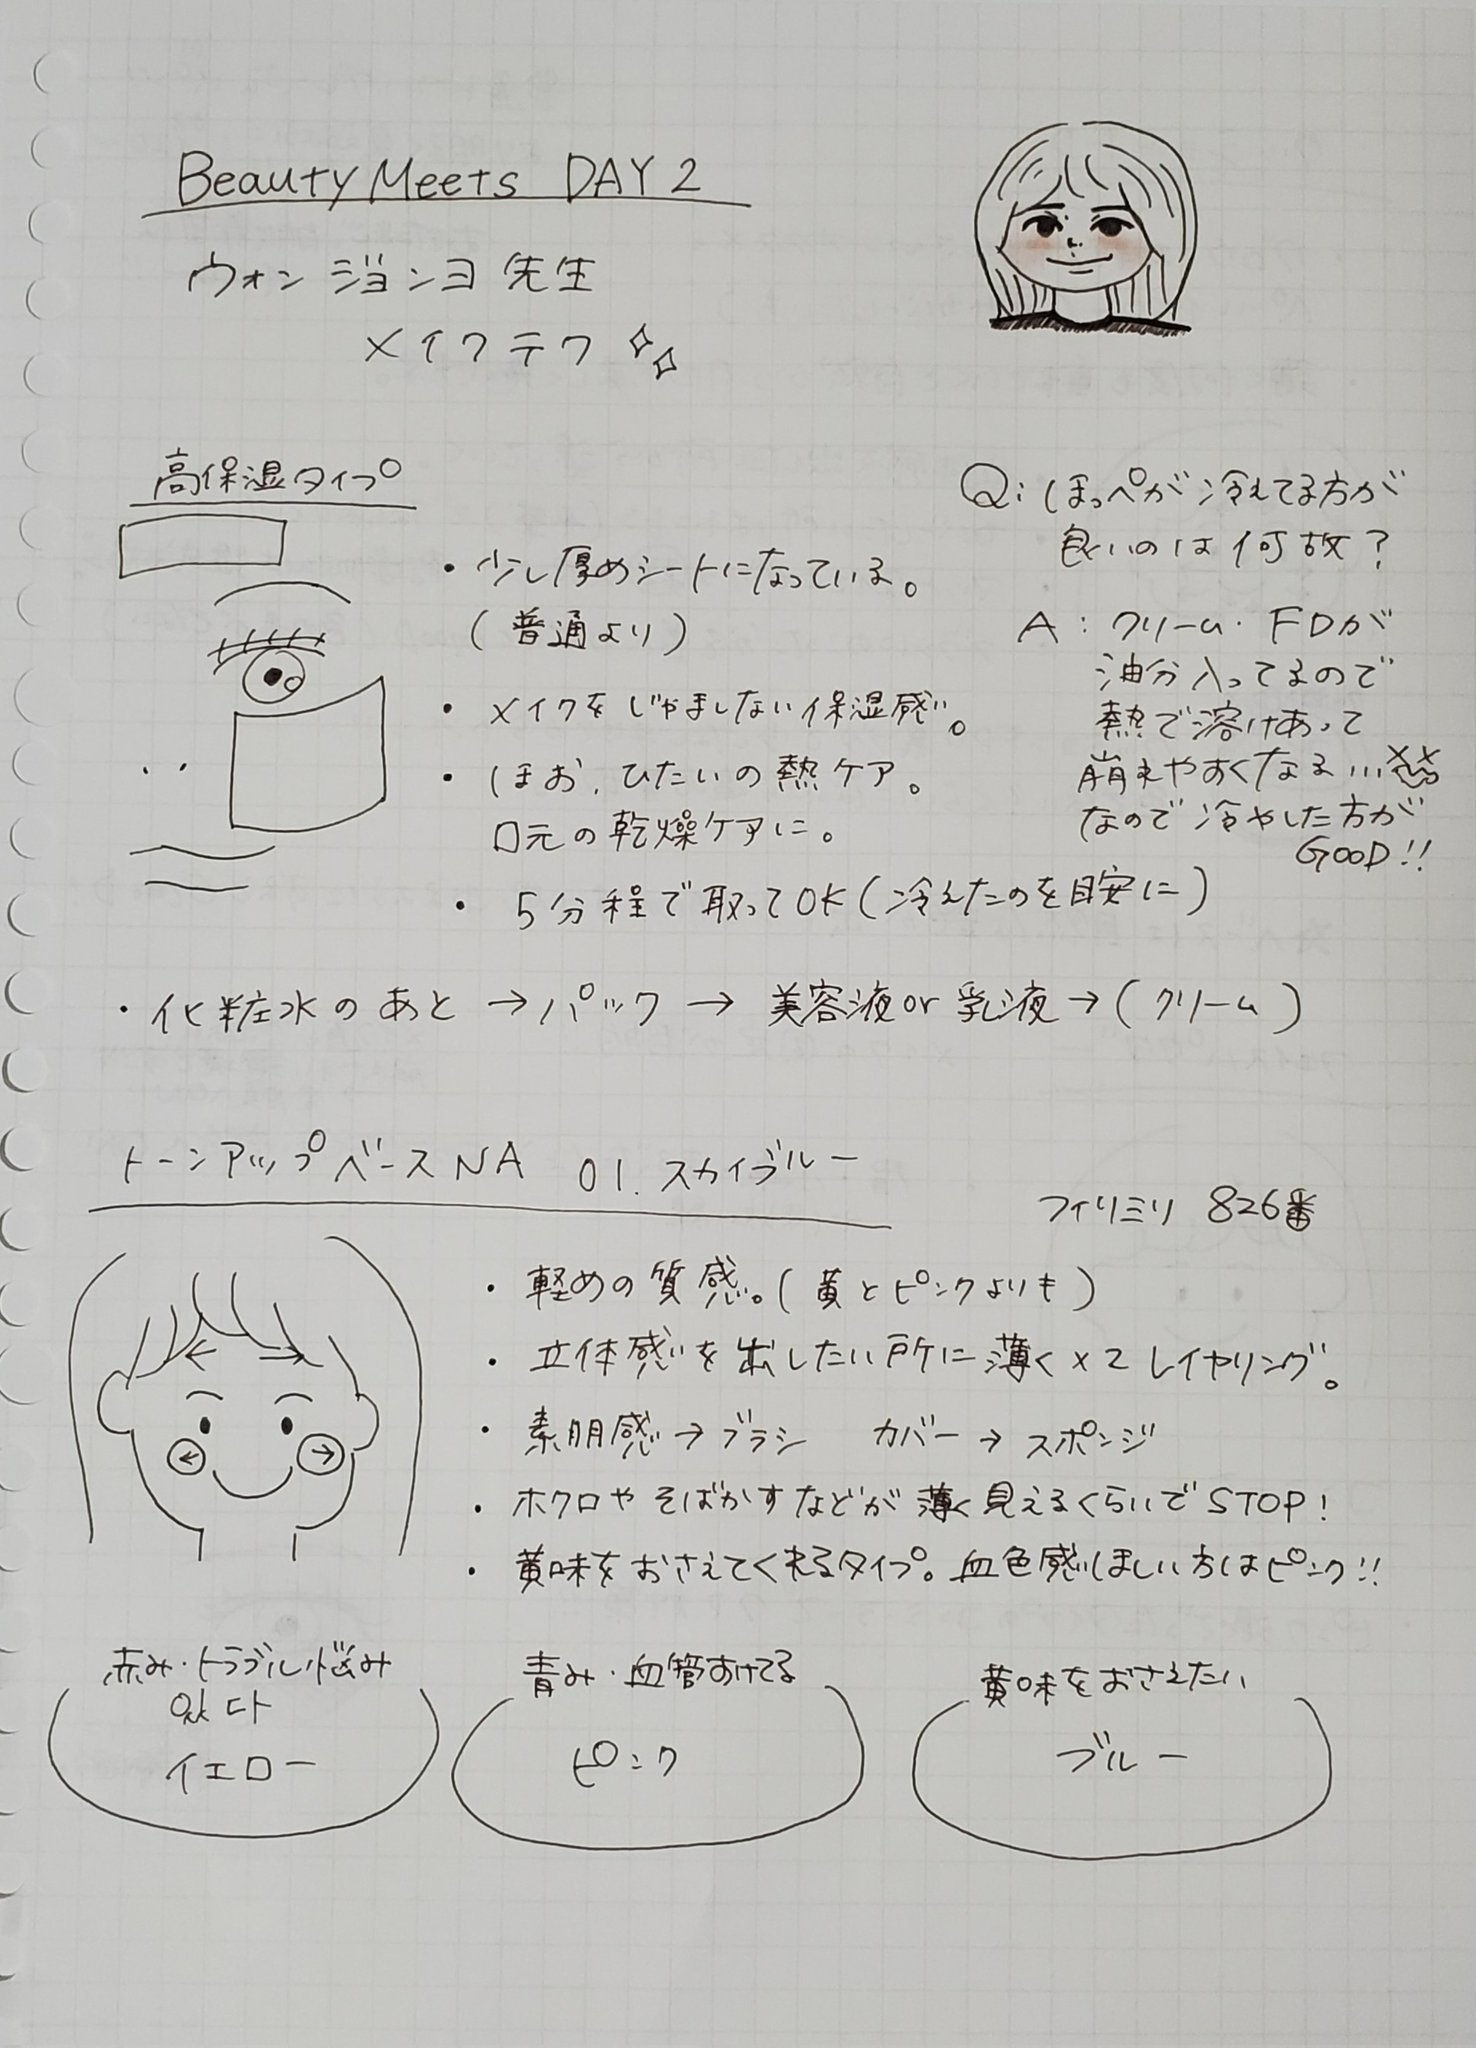 Beauty Meets DAY 2
ウォン ジョンヨ 先生
メイクテク
高保湿タイプ
・少し厚めシートになっている。
(普通より)
・メイクをじゃましない保湿感。
・ほお、ひたいの熱ケア。
口元の乾燥ケアに。
・5分程で取ってOK(冷えたのを目安に)
Q:ほっぺが冷えてる方が
良いのは何故?
A:クリーム・FDが
油分入ってるので
熱で溶けあって
崩れやすくなる...
なので冷やした方が
GOOD!!
・化粧水のあと→パック→美容液or乳液→(クリーム)
トーンアップベースNA 01.スカイブルー
フィリミリ 826番
・軽めの質感。(黄とピンクよりも)
・立体感を出したい所に薄く×2レイヤリング。
・素肌感→ブラシ カバー→スポンジ
・ホクロやそばかすなどが薄く見えるくらいでSTOP!
・黄味をおさえてくれるタイプ。血色感ほしい方はピンク!!
赤み・トラブル悩み
ヒト
イエロー
青み・血管すけてる
ピンク
黄味をおさえたい
ブルー